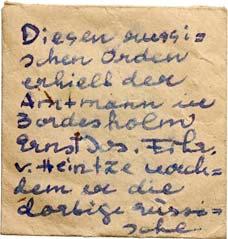 Diesen russi=
schen Orden
erhielt der
Amtmann in
Bordesholm
Ernst Jos. Frhr.
v. Heintze nach=
dem er die
dortige russi=
sche